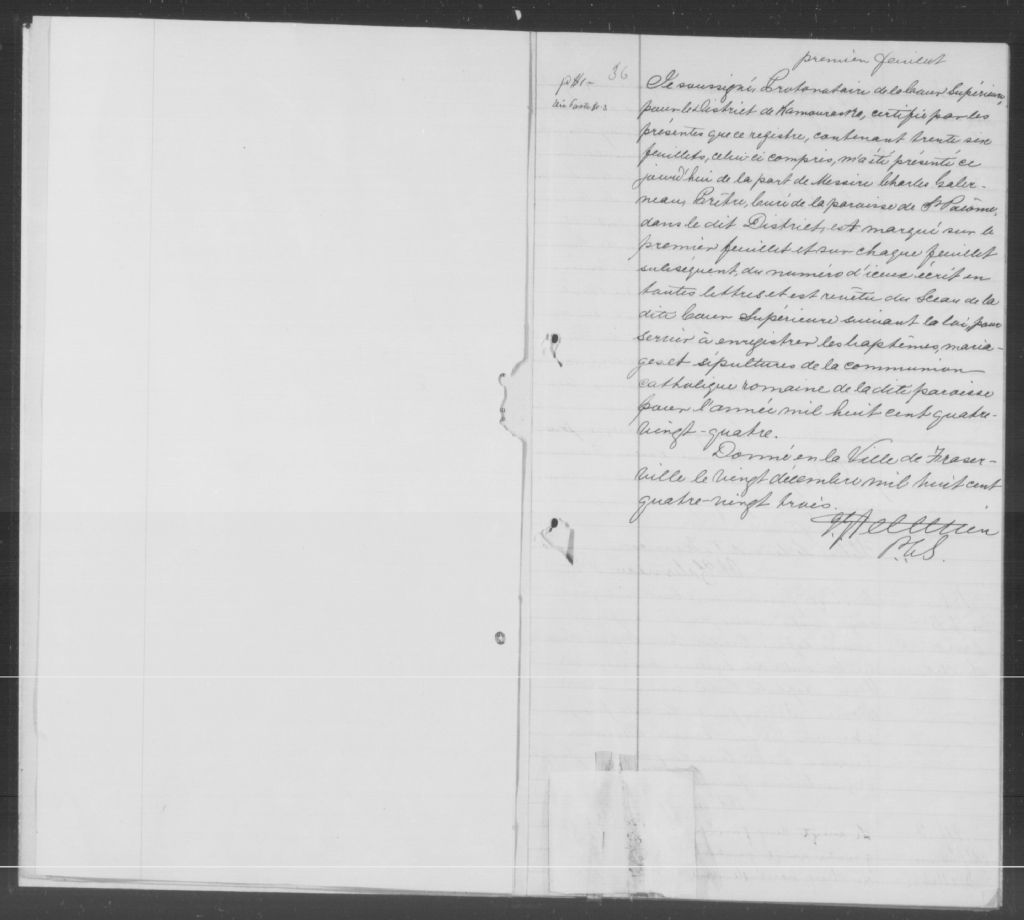 premier feuillet
36
Je soussigné, Protonotaire de la Cour Supérieure,
pour le District de Kamouraska, certifie par les
présentes que ce registre, contenant trente six
feuillets, celui ci compris, m'a été présenté ce
jourd'hui de la part de Messire Charles Galer-
neau, Prêtre, Curé de la paroisse de St Pacôme,
dans le dit District, est marqué sur le
premier feuillet et sur chaque feuillet
subséquent, du numéro d'iceux écrit en
toutes lettres et est revêtu du Sceau de la
dite Cour Supérieure suivant la loi, pour
servir à enregistrer les baptêmes, maria-
ges et sépultures de la communion
catholique romaine de la dite paroisse
pour l'année mil huit cent quatre-
vingt-quatre.
Donné en la Ville de Fraser-
ville le vingt décembre mil huit cent
quatre-vingt trois.
Pelletier
P.C.S.